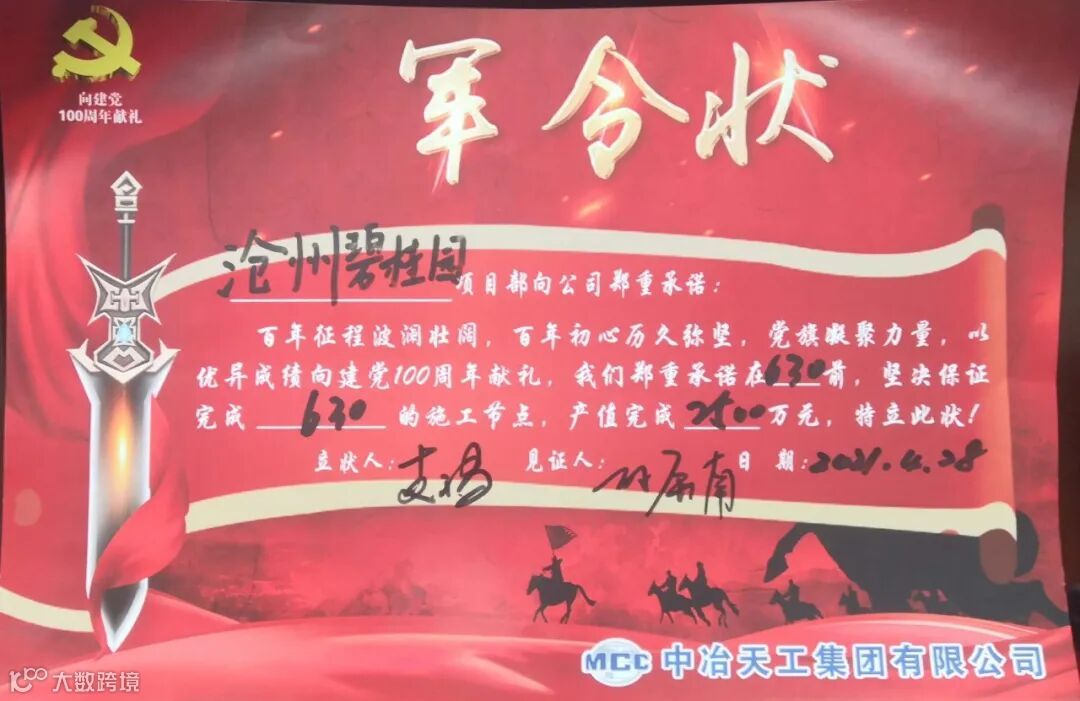 向建党
100周年献礼
军令状
沧州碧桂园项目部向公司郑重承诺：
百年征程波澜壮阔，百年初心历久弥坚，党旗凝聚力量，以
优异成绩向建党100周年献礼，我们郑重承诺在630前，坚决保证
完成 630 的施工节点，产值完成2500万元，特立此状！
立状人： 见证人： 日 期：2021.4.28
MCC 中冶天工集团有限公司
大数跨境